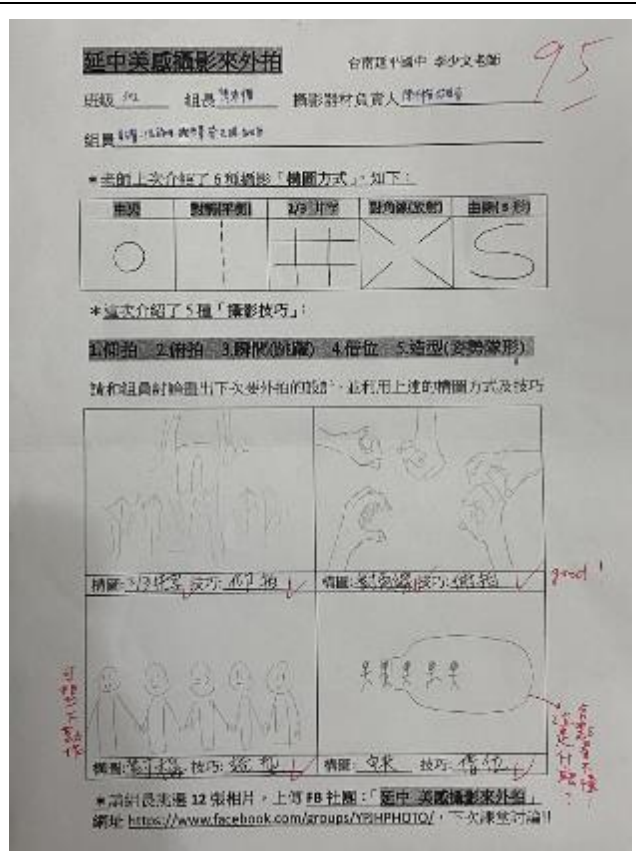 延中美感攝影來外拍 台南延平國中 李少文老師 95
班級 組長 攝影器材負責人
組員
*老師上次介紹了6種攝影「構圖方式」,如下:
中央 對稱(平衡) 2/3井字 對角線(放射) 曲線(S形)
*這次介紹了5種「攝影技巧」:
1.仰拍 2.俯拍 3.瞬間(跳躍) 4.借位 5.造型(姿勢隊形)
請和組員討論畫出下次要外拍的設計,並利用上述的構圖方式及技巧
構圖:2/3井字 技巧:仰拍 構圖:對角線 技巧:俯拍 good!
可想一下動作
構圖:對稱 技巧:造型 構圖: 技巧:借位
這是什麼?
*請組長挑選12張相片,上傳FB社團:「延中 美感攝影來外拍」
網址 https://www.facebook.com/groups/YPJHPHOTO/,下次課堂討論!!